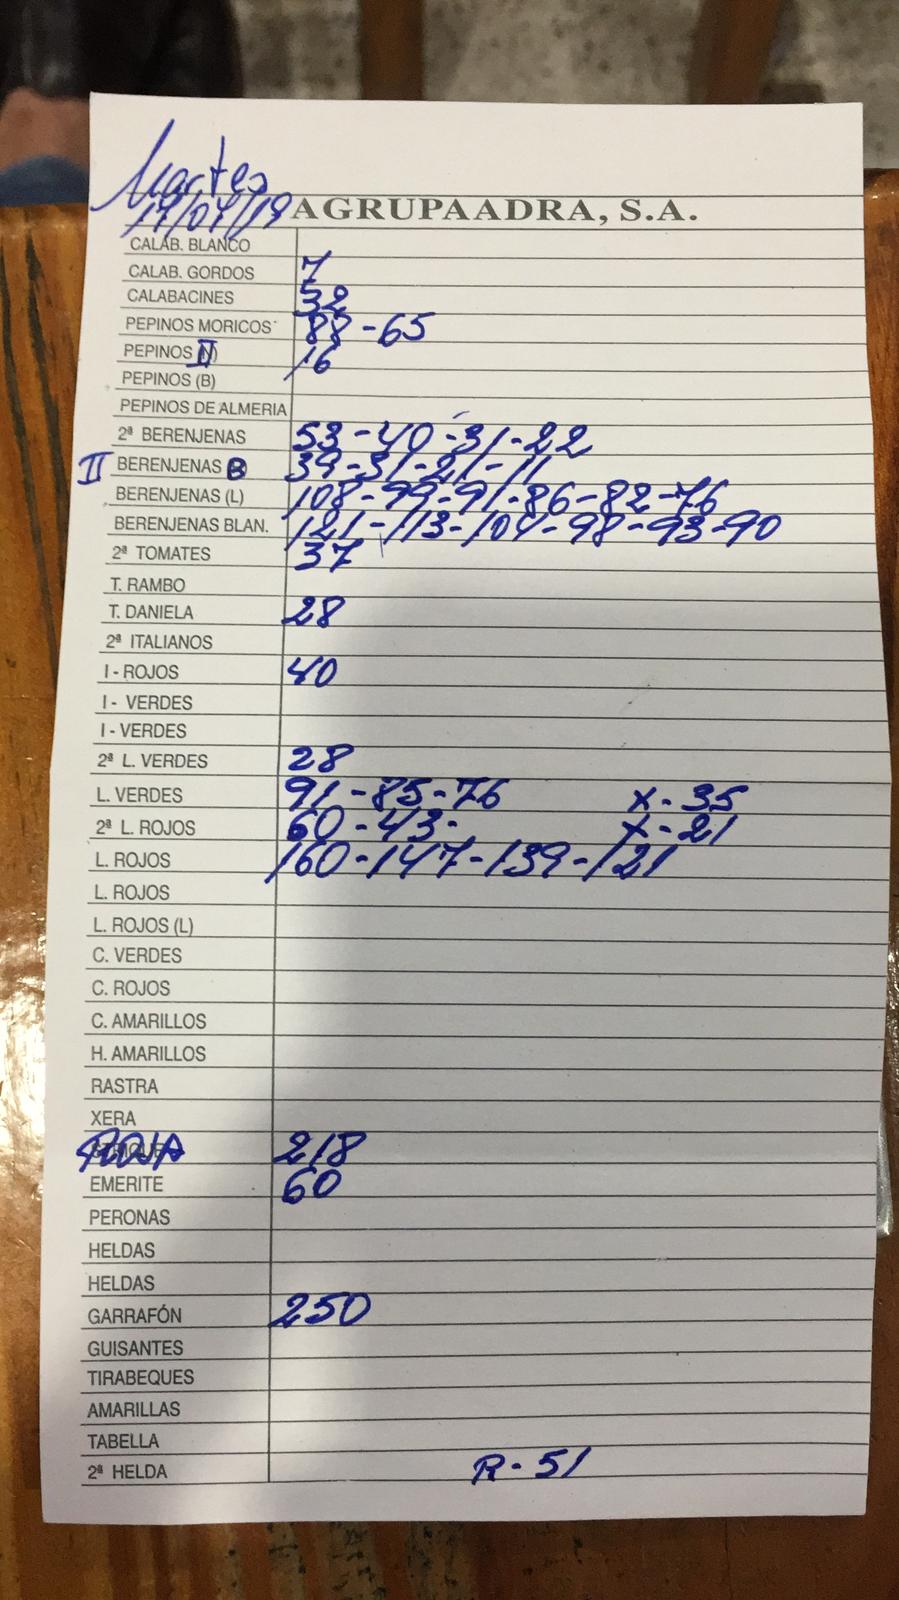 Martes
17/07/19 AGRUPAADRA, S.A.
CALAB. BLANCO
CALAB. GORDOS 7
CALABACINES 52
PEPINOS MORICOS 88-65
PEPINOS II 16
PEPINOS (B)
PEPINOS DE ALMERIA
2ª BERENJENAS 53-40-31-22
II BERENJENAS B 39-31-21-11
BERENJENAS (L) 108-99-91-86-82-76
BERENJENAS BLAN. 121-113-104-98-93-90
2ª TOMATES 37
T. RAMBO
T. DANIELA 28
2ª ITALIANOS
I - ROJOS 40
I - VERDES
I - VERDES
2ª L. VERDES 28
L. VERDES 91-85-76 x-35
2ª L. ROJOS 60-43- x-21
L. ROJOS 160-147-139-121
L. ROJOS
L. ROJOS (L)
C. VERDES
C. ROJOS
C. AMARILLOS
H. AMARILLOS
RASTRA
XERA
ROJA 218
EMERITE 60
PERONAS
HELDAS
HELDAS
GARRAFÓN 250
GUISANTES
TIRABEQUES
AMARILLAS
TABELLA
2ª HELDA R-51